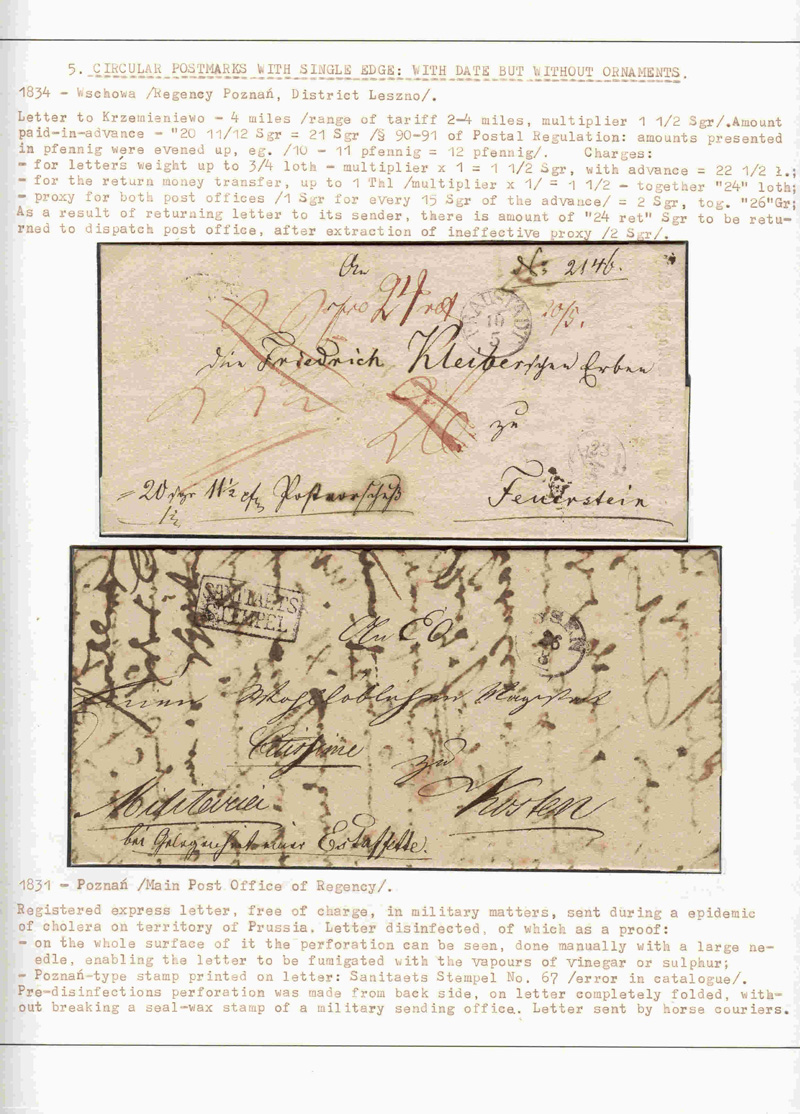 5. CIRCULAR POSTMARKS WITH SINGLE EDGE: WITH DATE BUT WITHOUT ORNAMENTS.
1834 - Wschowa /Regency Poznań, District Leszno/.
Letter to Krzemieniewo - 4 miles /range of tariff 2-4 miles, multiplier 1 1/2 Sgr/.Amount
paid-in-advance - "20 11/12 Sgr = 21 Sgr /§ 90-91 of Postal Regulation: amounts presented
in pfennig were evened up, eg. /10 - 11 pfennig = 12 pfennig/. Charges:
- for letter's weight up to 3/4 loth - multiplier x 1 = 1 1/2 Sgr, with advance = 22 1/2 l.;
- for the return money transfer, up to 1 Thl /multiplier x 1/ = 1 1/2 - together "24" loth;
- proxy for both post offices /1 Sgr for every 15 Sgr of the advance/ = 2 Sgr, tog. "26"Gr;
As a result of returning letter to its sender, there is amount of "24 ret" Sgr to be retu-
rned to dispatch post office, after extraction of ineffective proxy /2 Sgr/.
An
No 2146.
24 ret
FRAUSTADT
10
5
20/5.
die Friedrich Kleiberschen Erben
26
zu
23
= 20 sgr 11½ pf Postvorschuß
1½
Feuerstein
SANITAETS
STEMPEL
An Ea
Wohllöblichen Magistrat
Citissime
zu
Militaria
Kosten
bei Gelegenheit einer Estaffette.
1831 - Poznań /Main Post Office of Regency/.
Registered express letter, free of charge, in military matters, sent during a epidemic
of cholera on territory of Prussia. Letter disinfected, of which as a proof:
- on the whole surface of it the perforation can be seen, done manually with a large ne-
edle, enabling the letter to be fumigated with the vapours of vinegar or sulphur;
- Poznań-type stamp printed on letter: Sanitaets Stempel No. 67 /error in catalogue/.
Pre-disinfections perforation was made from back side, on letter completely folded, with-
out breaking a seal-wax stamp of a military sending office. Letter sent by horse couriers.